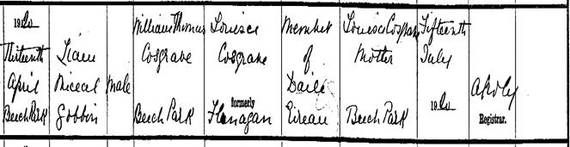 1920
Thirteenth
April
Beech Park
Liam
male
William Thomas
Cosgrave
Beech Park
Louisa
Cosgrave
formerly
Flanagan
Member
of
Dail
Eireann
Louisa Cosgrave
Mother
Beech Park
Fifteenth
July
1920
Registrar.